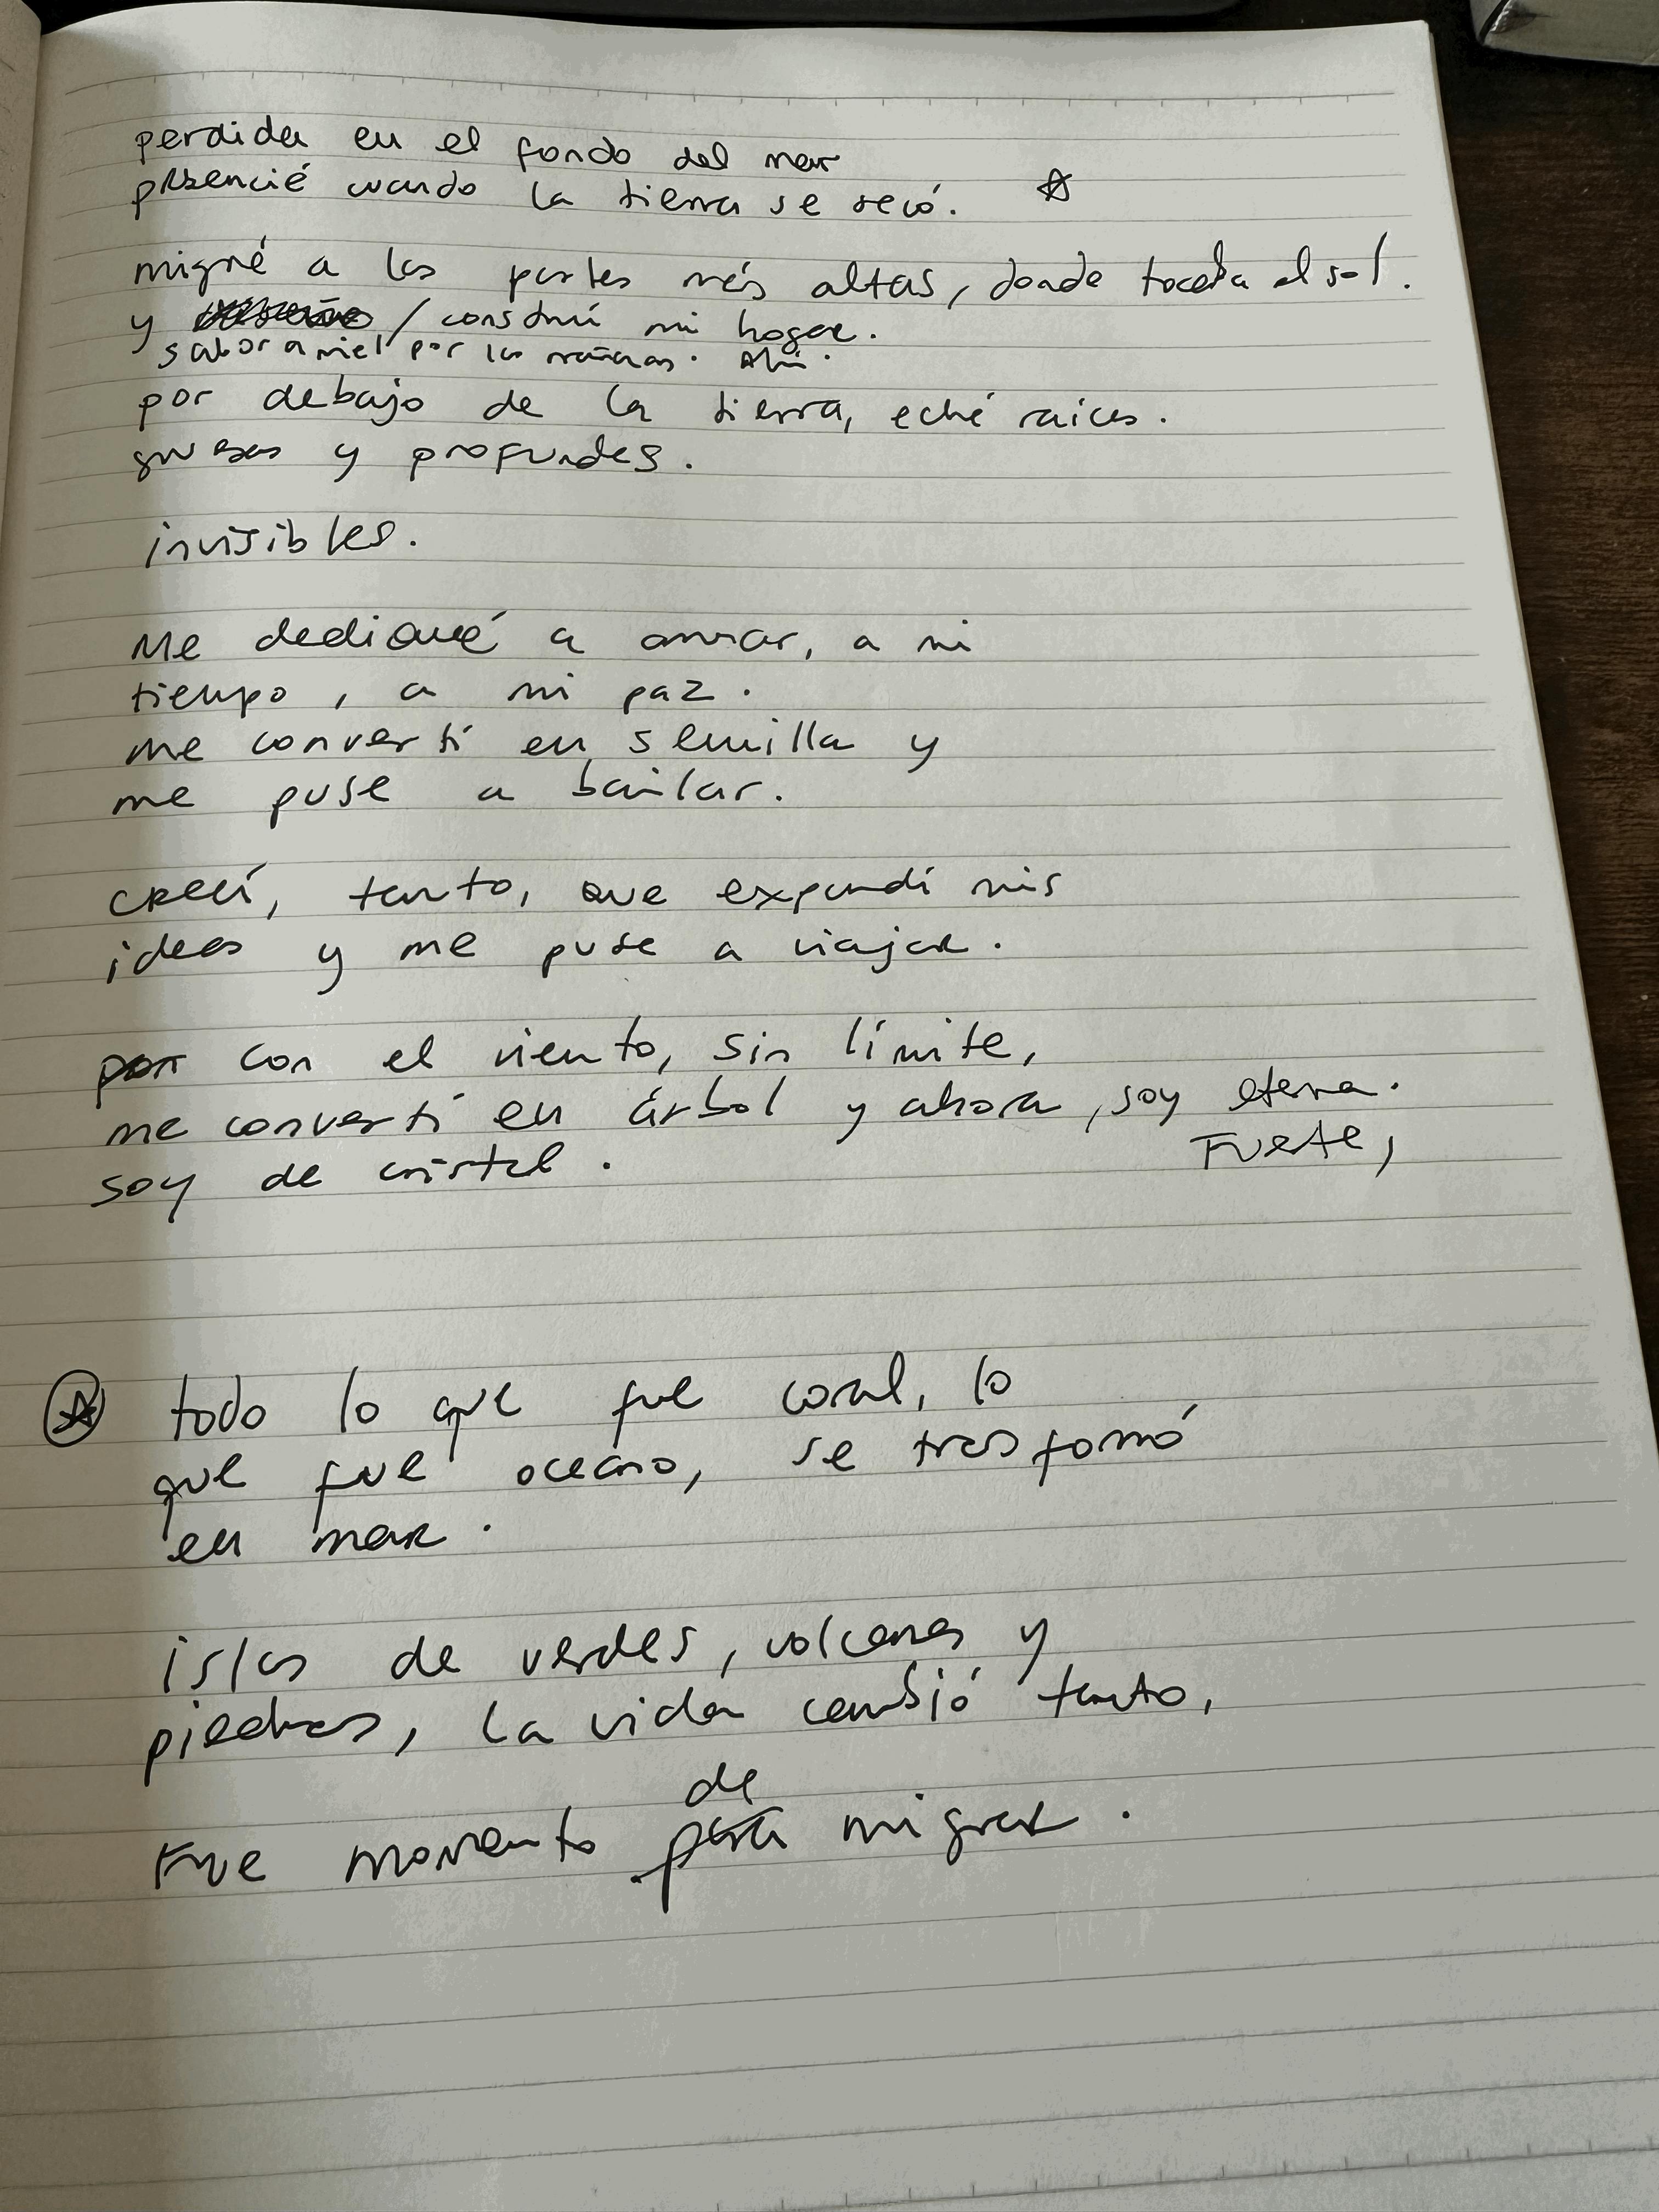 perdida en el fondo del mar
presencié cuando la tierra se secó. ☆
migré a las partes más altas, donde tocaba el sol.
y / construí mi hogar.
sabor a miel por las mañanas. Ahí.
por debajo de la tierra, eché raices.
gruesas y profundas.
invisibles.
Me dediqué a amar, a mi
tiempo, a mi paz.
me convertí en semilla y
me puse a bailar.
crecí, tanto, que expandí mis
ideas y me puse a viajar.
por con el viento, sin límite,
me convertí en árbol y ahora, soy eterna.
Fuerte,
soy de cristal.
☆ todo lo que fue coral, lo
que fue oceano, se trasformó
en mar.
islas de verdes, volcanes y
piedras, la vida cambió tanto,
de
Fue momento para migrar.